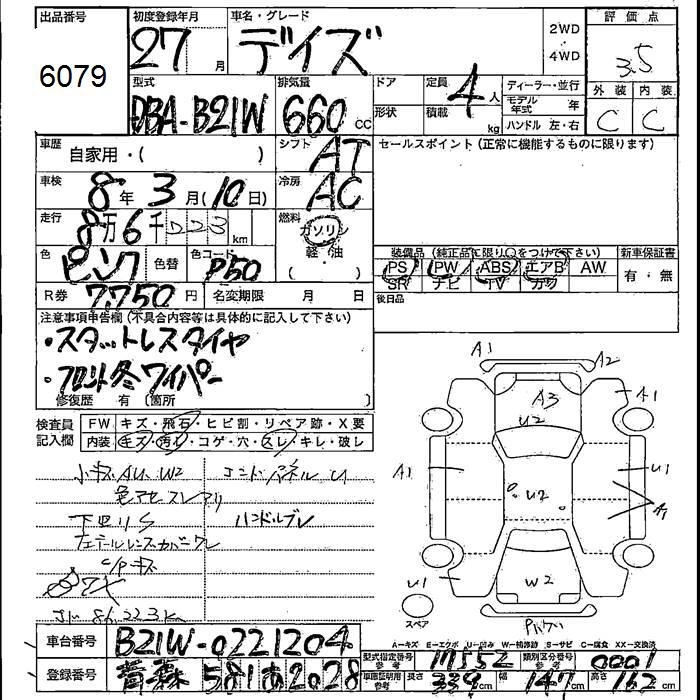 出品番号
6079
初度登録年月
27月
車名・グレード
デイズ
2WD
・
4WD
評価点
3.5
外装 内装
C C
型式
DBA-B21W
排気量
660cc
ドア
形状
定員
4人
積載
kg
ディーラー・並行
モデル年式 年
ハンドル 左・右
車歴
自家用・( )
シフト
AT
セールスポイント(正常に機能するものに限ります)
車検
8年3月(10日)
冷房
AC
走行
8万6千223km
燃料
ガソリン
軽・油
( )
色
ピンク
色替
色コード
P50
装備品(純正品に限り○をつけて下さい)
PS PW ABS エアB AW
SR ナビ TV カワ
新車保証書
有・無
後日品
R券
7,750円
名変期限 月 日
注意事項申告欄(不具合内容等は具体的に記入して下さい)
・スタットレスタイヤ
・フロント冬ワイパー
修復歴 有〔箇所 〕
検査員
記入欄
FW キズ・飛石・ヒビ割・リペア跡・X要
内装 キズ・汚れ・コゲ・穴・スレ・キレ・破レ
小キズ AU W2
色アセ スレアリ
下回りS
エンドパネル U
ハンドルブレ
A1
A2
A3
U2
A1
A1
U1
U2
A1
U1
W2
スペア
A-キズ E-エクボ U-凹み W-補修跡 S-サビ C-腐食 XX-交換済
車台番号
B21W-0221204
登録番号
青森 581あ2028
型式指定番号
参考
17552
類別区分番号
参考
0001
車庫証明用
参考
長さ 339cm
幅 147cm
高さ 162cm